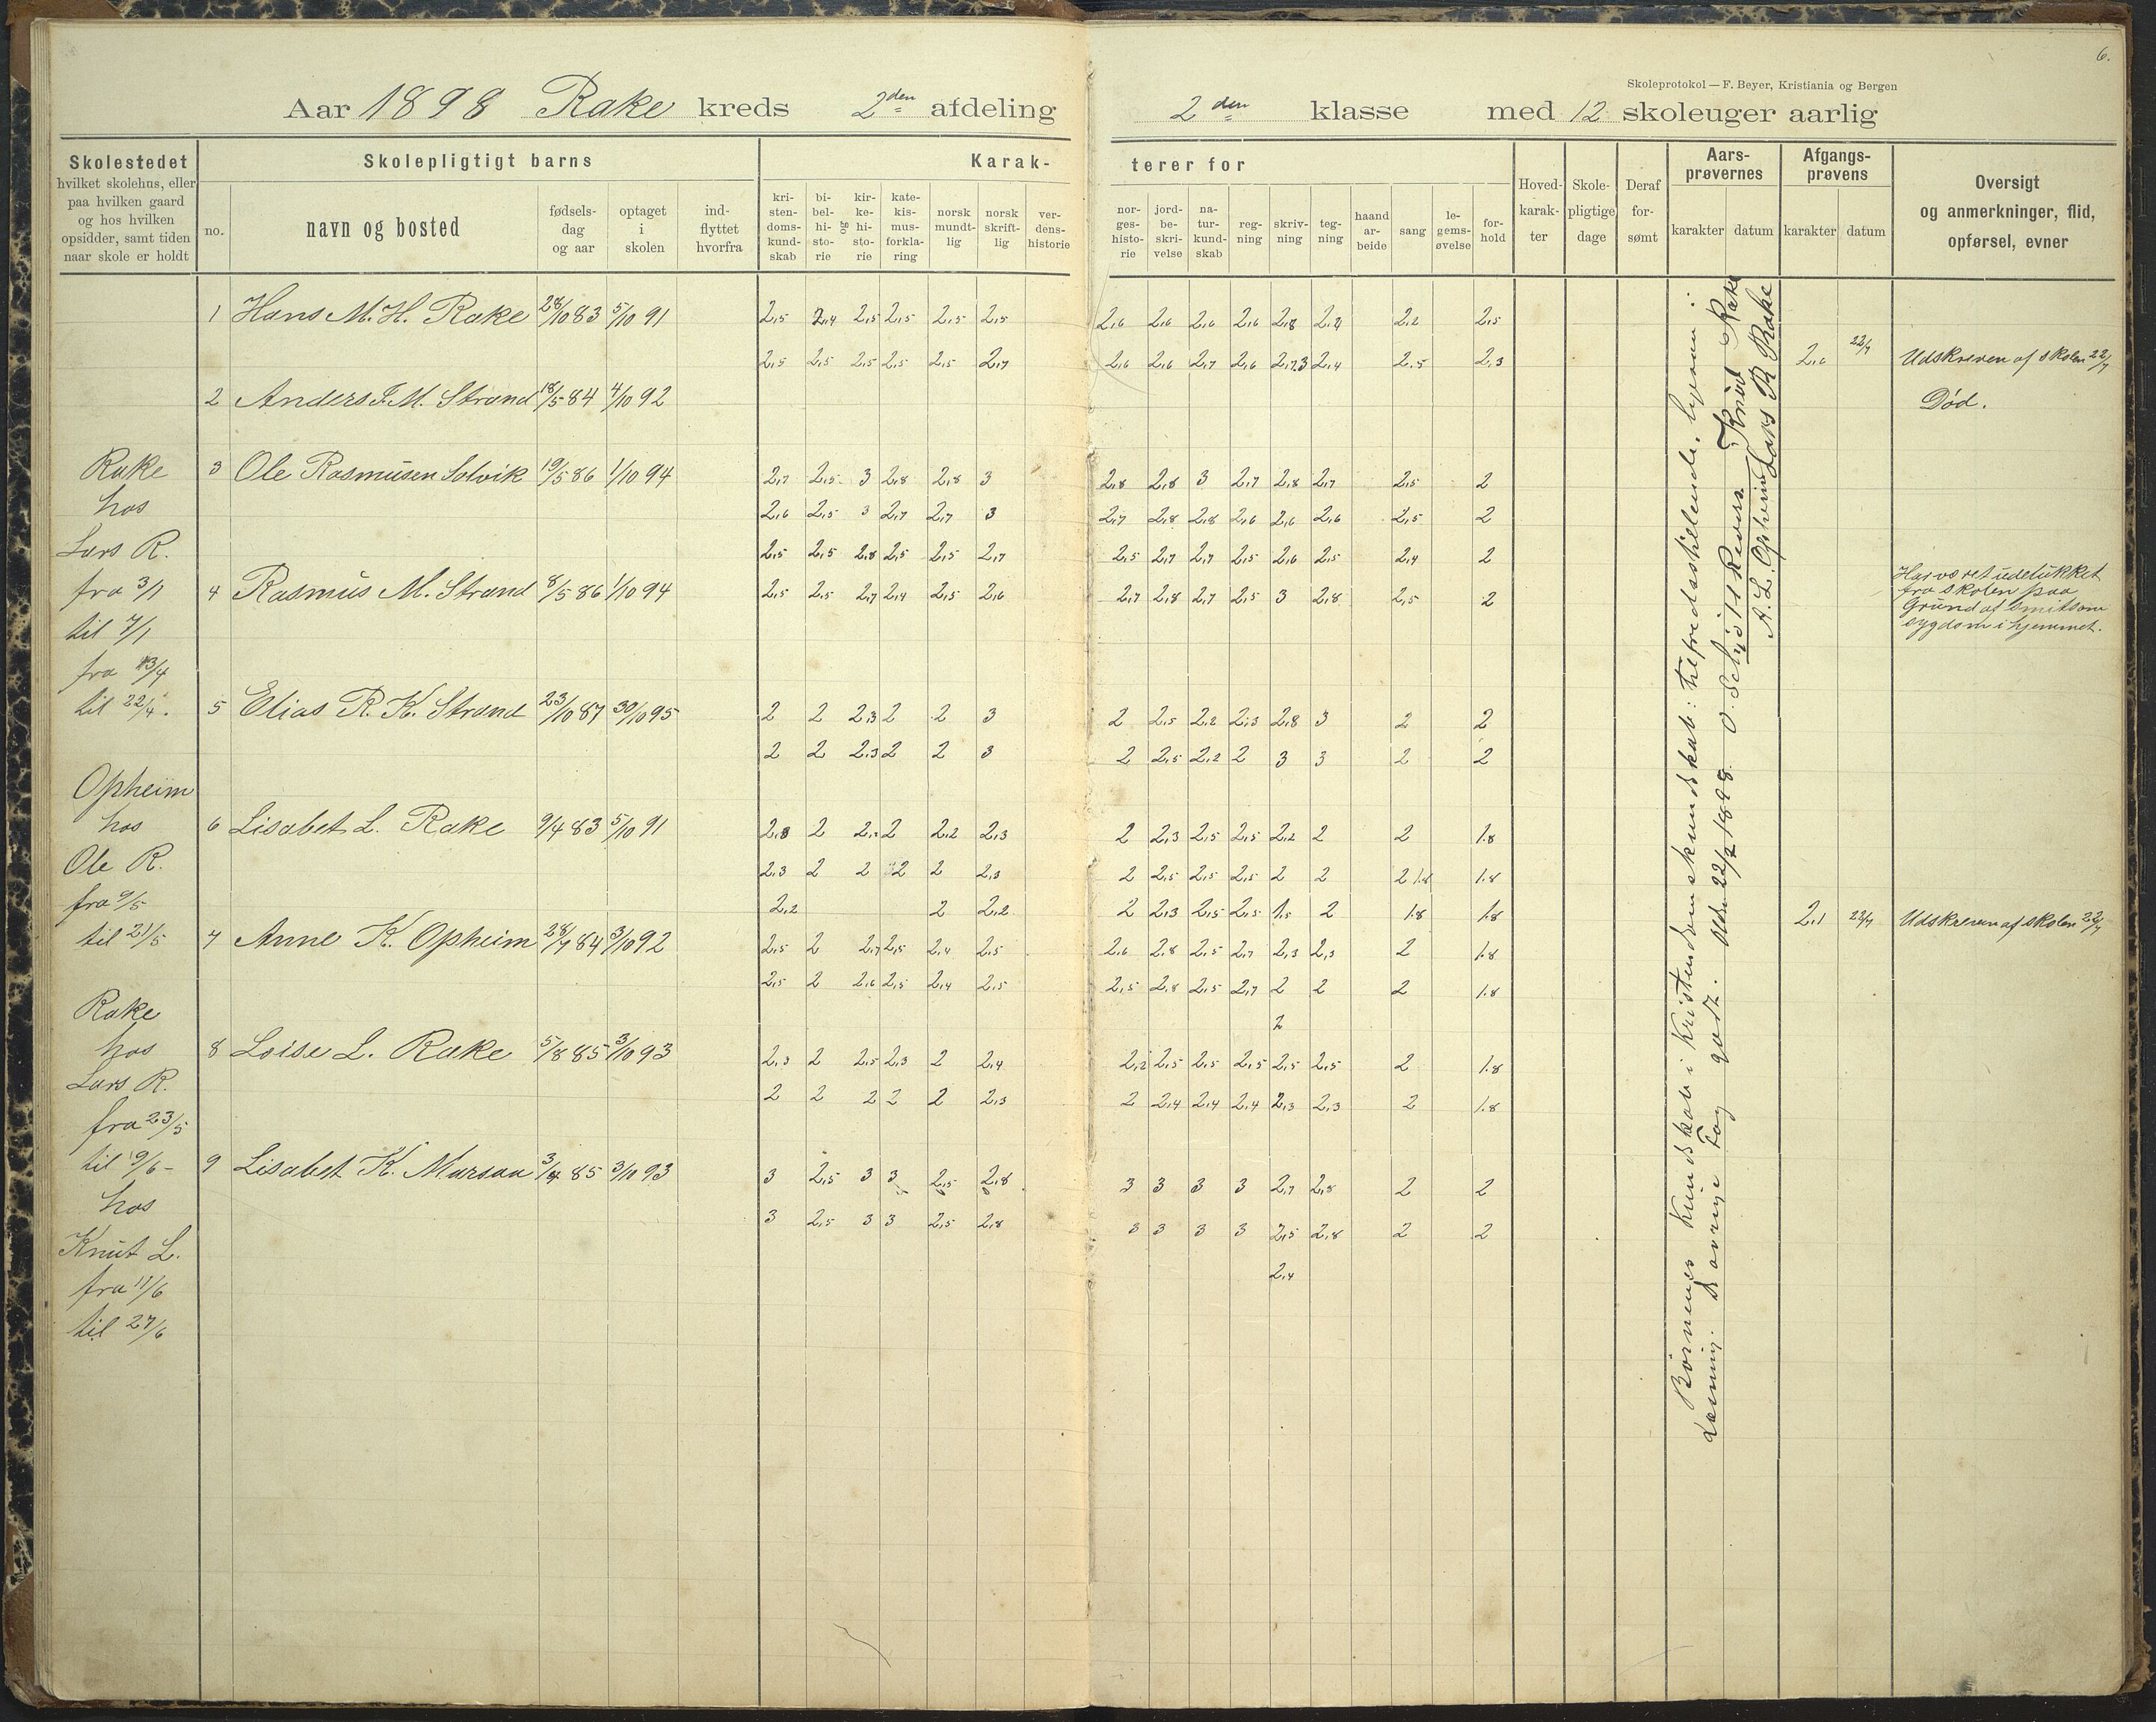 6.
Skoleprotokol — F. Beyer, Kristiania og Bergen
Aar 1898 Rake kreds 2den afdeling 2den klasse med 12 skoleuger aarlig
Skolestedet
hvilket skolehus, eller
paa hvilken gaard
og hos hvilken
opsidder, samt tiden
naar skole er holdt
Skolepligtigt barns
no.
navn og bosted
fødsels-
dag
og aar
optaget
i
skolen
ind-
flyttet
hvorfra
Karak-
terer for
kri-
sten-
doms-
kund-
skab
bi-
bel-
hi-
sto-
rie
og
kir-
ke-
hi-
sto-
rie
kate-
kis-
mus-
forkla-
ring
norsk
mundt-
lig
norsk
skrift-
lig
ver-
dens-
historie
nor-
ges-
histo-
rie
jord-
be-
skri-
velse
na-
tur-
kund-
skab
reg-
ning
skriv-
ning
teg-
ning
haand
ar-
beide
sang
le-
gems-
øvelse
for-
hold
Hoved-
karak-
ter
Skole-
pligtige
dage
Deraf
for-
sømt
Aars-
prøvernes
karakter datum
Afgangs-
prøvens
karakter datum
Oversigt
og anmerkninger, flid,
opførsel, evner
1 Hans M. H. Rake 28/10 83 5/10 91 2,5 2,4 2,5 2,5 2,5 2,5 2,6 2,6 2,6 2,6 2,8 2,2 2,2 2,5
2,5 2,5 2,5 2,5 2,5 2,7 2,6 2,6 2,7 2,6 2,4 2,5 2,3 2,6 22/7 Udskreven af skolen 22/7
2 Anders F. M. Strand 18/5 84 4/10 92 Død.
Rake
3 Ole Rasmusen Solvik 19/5 86 1/10 94 2,7 2,5 3 2,8 2,8 3 2,8 2,8 3 2,7 2,8 2,7 2,5 2
hos
2,6 2,5 3 2,7 2,7 3 2,7 2,8 2,8 2,6 2,6 2,6 2,5 2
Lars R.
2,5 2,5 2,8 2,5 2,5 2,7 2,5 2,7 2,7 2,5 2,6 2,5 2,4 2
fra 3/1
4 Rasmus M. Strand 8/5 86 1/10 94 2,5 2,5 2,7 2,4 2,5 2,6 2,7 2,8 2,7 2,5 3 2,8 2,5 2
Har været udelukket
fra skolen paa
Grund af smitsom
sygdom i hjemmet.
til 7/1
fra 13/4
til 22/4.
5 Elias R. K. Strand 23/10 87 30/10 95 2 2 2,3 2 2 3 2 2,5 2,2 2,3 2,8 3 2 2
2 2 2,3 2 2 3 2 2,5 2,2 2 3 3 2 2
Opheim
hos
6 Lisabet L. Rake 9/4 83 5/10 91 2,3 2 2,2 2 2,2 2,3 2 2,3 2,5 2,5 2,2 2 2 1.8
Ole R.
2,3 2 2 2 2 2,3 2 2,5 2,5 2,5 2 2 2 1.8 1.8
fra 9/5
2,2 2 2,2 2 2,3 2,5 2,5 1,5 2 1.8 1.8 2,1 22/7 Udskreven af skolen 22/7
til 21/5
7 Anne K. Opheim 28/7 84 3/10 92 2,5 2 2,7 2,5 2,4 2,5 2,6 2,8 2,5 2,7 2,3 2,3 2 1.8
2,5 2 2,6 2,5 2,4 2,5 2,5 2,8 2,5 2,7 2 2 2 1.8
Rake
2
hos
8 Loise L. Rake 5/8 85 3/10 93 2,3 2 2,5 2,3 2 2,4 2,2 2,5 2,5 2,5 2,5 2,5 2 1.8
Lars R.
2 2 2 2 2 2,3 2 2,4 2,4 2,4 2,3 2,3 2 1.8
fra 23/5
til 9/6 -
9 Lisabet K. Marsaa 3/4 85 3/10 93 3 2,5 3 3 2,5 2,8 3 3 3 3 2,7 2,8 2 2
hos
3 2,5 3 3 2,5 2,8 3 3 3 3 2,5 2,8 2 2
Knut L.
2,4
fra 11/6
til 27/6
Børnenes kundskab i Kristendomskundskab: tilfredsstillende, ligesaa i
Læsning. Øvrige Fag godt. 22/7 1898.
Knud Rake
A. L. Opheim Lars R Rake